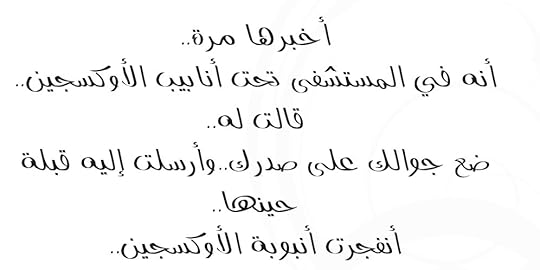 أخبرها مرة..
أنه في المستشفى تحت أنابيب الأوكسجين..
قالت له..
ضع جوالك على صدرك..وأرسلت إليه قبلة
حينها..
أنفجرت أنبوبة الأوكسجين..